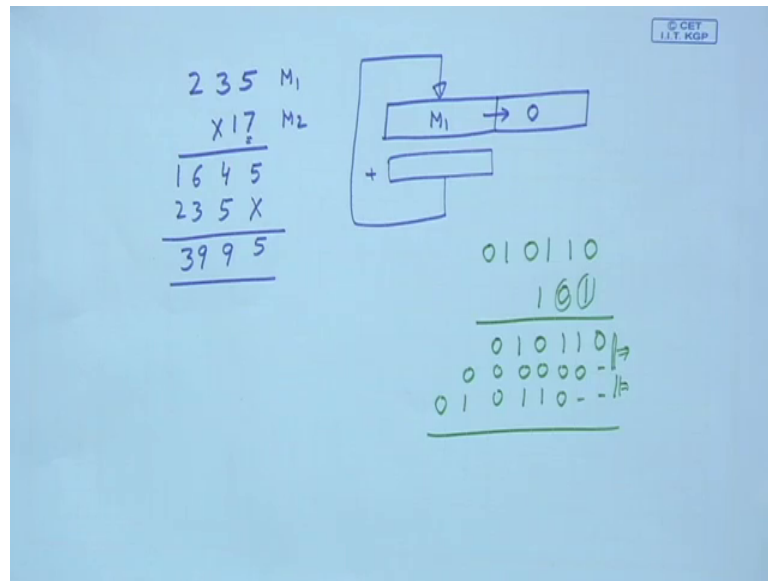 © CET
I.I.T. KGP
2 3 5 M1
X 1 7 M2
1 6 4 5
2 3 5 X
3 9 9 5
M1 → 0
+
0 1 0 1 1 0
1 0 1
0 1 0 1 1 0
0 0 0 0 0 0 -
0 1 0 1 1 0 - -